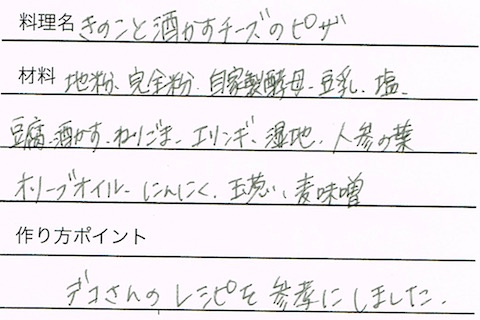 料理名 きのこと酒かすチーズのピザ
材料 地粉、完全粉、自家製酵母、豆乳、塩、
豆腐、酒かす、ねりごま、エリンギ、湿地、人参の葉
オリーブオイル、にんにく、玉葱、麦味噌
作り方ポイント
デコさんのレシピを参考にしました。